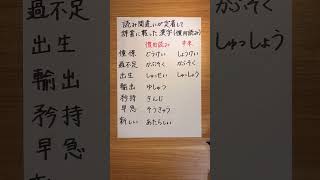 読み間違いが定着して
辞書に載った漢字(慣用読み)
慣用読み 本来
憧憬 どうけい しょうけい
過不足 かぶそく かふそく
出生 しゅっせい しゅっしょう
輸出 ゆしゅつ
矜持 きんじ
早急 そうきゅう
新しい あたらしい
過不足
出生
輸出
矜持
早急
かふそく
しゅっしょう